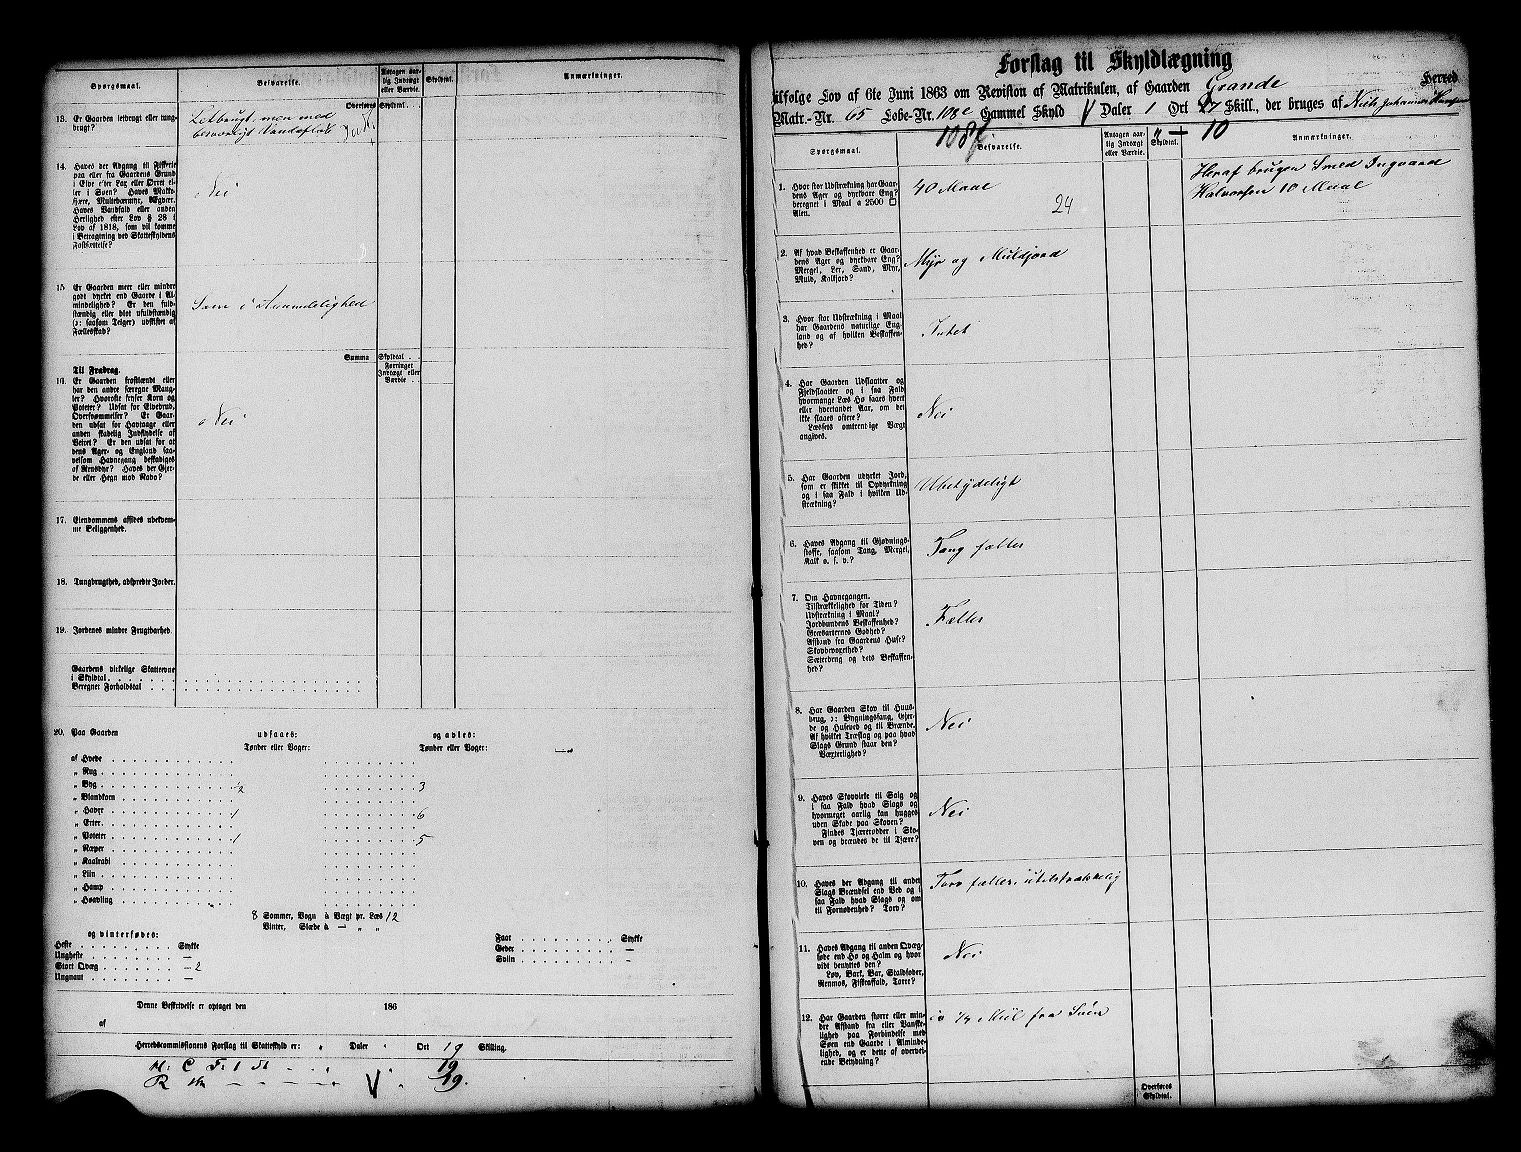 Spørgsmaal. Besvarelse. Antagen aarlig Indtægt eller Værdie. Skyldtal. Anmærkninger.
Overføres Skyldtal.
13. Er Gaarden letbrugt eller tungbrugt?
Letbrugt, men med
besværligt Vandafløb
14. Haves der Adgang til Fiskerie
paa eller fra Gaardens Grund
i Elve efter Lax eller Ørret eller
i Søen? Haves Møllebrug,
Herlighed efter Lov § 28 i
Lov af 1818, som vil komme
i Betragtning ved Skatteskyldens
Fastsættelse?
Nei
15. Er Gaarden mere eller mindre
godt dyrket end Gaarde i Almindelighed?
Er den fuldstændig
eller blot ufuldstændig
(ɔ: saasom Teiger) udskiftet af
Fællesskab?
Som i Almindelighed
Summa Skyldtal . .
Forringet
Indtægt eller
Værdie . .
Til Fradrag.
16. Er Gaarden frostlændt eller
har den andre særegne Mangler?
Hvorofte fryser Korn og
Poteter? Udsat for Elvebrud,
Oversvømmelser? Er Gaarden
udsat for Havtaage eller
anden skadelig Indflydelse af
Veiret? Er den udsat for at
dens Ager- og England saavelsom
Havnegang beskadiges
af Rensdyr? Haves der Gjerde
eller Hegn mod Nabo?
Nei
17. Eiendommens afsides ubekvemme
Beliggenhed.
18. Tungbrugthed, adspredte Jorder.
19. Jordenes mindre Frugtbarhed.
Gaardens virkelige Skatteevne
i Skyldtal
Beregnet Forholdstal
20. Paa Gaarden udsaaes: og avles:
Tønder eller Voger: Tønder eller Voger:
af Hvede
„ Rug
„ Byg ½ 3
„ Blandkorn
„ Havre 1 6
„ Erter
„ Poteter 1 5
„ Næper
„ Kaalrabi
„ Liin
„ Hamp
„ Høavling
8 Sommer, Vogn à Vægt pr. Læs 12
Vinter, Slæde à — „ „
og vinterfødes:
Heste Stykke
Ungheste —
Stort Qvæg — 2
Ungnaut —
Faar Stykke
Geder —
Sviin -
Denne Beskrivelse er optaget den 186
af
Herredscommissionens Forslag til Skatteskyld er: „ Daler „ Ort 19 Skilling.
19
19.
Forslag til Skyldlægning
tilfølge Lov af 6te Juni 1863 om Revision af Matrikulen, af Gaarden Grande Herred
Matr.-Nr. 65 Løbe-Nr. 108c Gammel Skyld Daler 1 Ort 27 Skill., der bruges af Niels Johannes Hansen
108f
„ — 10
Spørgsmaal. Besvarelse. Antagen aarlig Indtægt eller Værdie. Skyldtal. Anmærkninger.
1. Hvor stor Udstrækning har Gaardens
Ager og dyrkbare Eng?
beregnet i Maal a 2500 □
Alen.
40 Maal
24
Heraf bruger Smed Ingvard
Halvorsen 10 Maal
2. Af hvad Beskaffenhed er Gaardens
Ager og dyrkbare Eng?
Mergel, Ler, Sand, Myr,
Muld, Kalkjord?
Myr og Muldjord
3. Hvor stor Udstrækning i Maal
har Gaardens naturlige England
og af hvilken Beskaffenhed?
Intet
4. Har Gaarden Udslaatter og
Fjeldslaatter og i saa Fald
hvormange Læs Hø saaes hvert
eller hvertandet Aar, om det
ikke slaaes oftere?
Læssets omtrentlige Vægt
angives.
Nei
5. Har Gaarden udyrket Jord,
som er skikket til Opdyrkning
og i saa Fald i hvilken Udstrækning?
Ubetydeligt
6. Haves Adgang til Gjødningsstoffe,
saasom Tang, Mergel,
Kalk o. s. v.?
Tang fælles
7. Om Havnegangen.
Tilstrækkelighed for Tiden?
Udstrækning i Maal?
Jordbundens Beskaffenhed?
Græsarternes Godhed?
Afstand fra Gaardens Huse?
Skovbevoxethed?
Sæterbeng og dets Beskaffenhed?
Fælles
8. Har Gaarden Skov til Huusbrug,
ɔ: Bygningsfang, Gjerde
og Husved og til Brænde.
Af hvilket Træslag og paa hvad
Slags Grund staar den?
Væxterlighed?
Nei
9. Haves Skovvirke til Salg og
i saa Fald hvad Slags og
hvormeget aarlig kan hugges
uden Skade paa Skoven?
Findes Tjærerødder i Skoven
og brændes de til Tjære?
Nei
10. Haves der Adgang til andet
Slags Brændsel end Ved og i
saa Fald hvad Slags og om
til Fornødenhed? Torv?
Torv fælles, utilstrækkelig
11. Haves Adgang til anden Qvægføde
end Hø og Halm og hvorvidt
benyttes den?
Løv, Bark, Bar, Staldfoder,
Renmos, Fiskeaffald, Tarre?
Nei
12. Har Gaarden større eller mindre
Afstand fra eller Vanskelighed
paa Forbindelse med
Søen end Gaarde i Almindelighed,
og er dette af overveiende
Betydning?
ca ¼ Miil fra Søen
Overføres
Skyldtal.